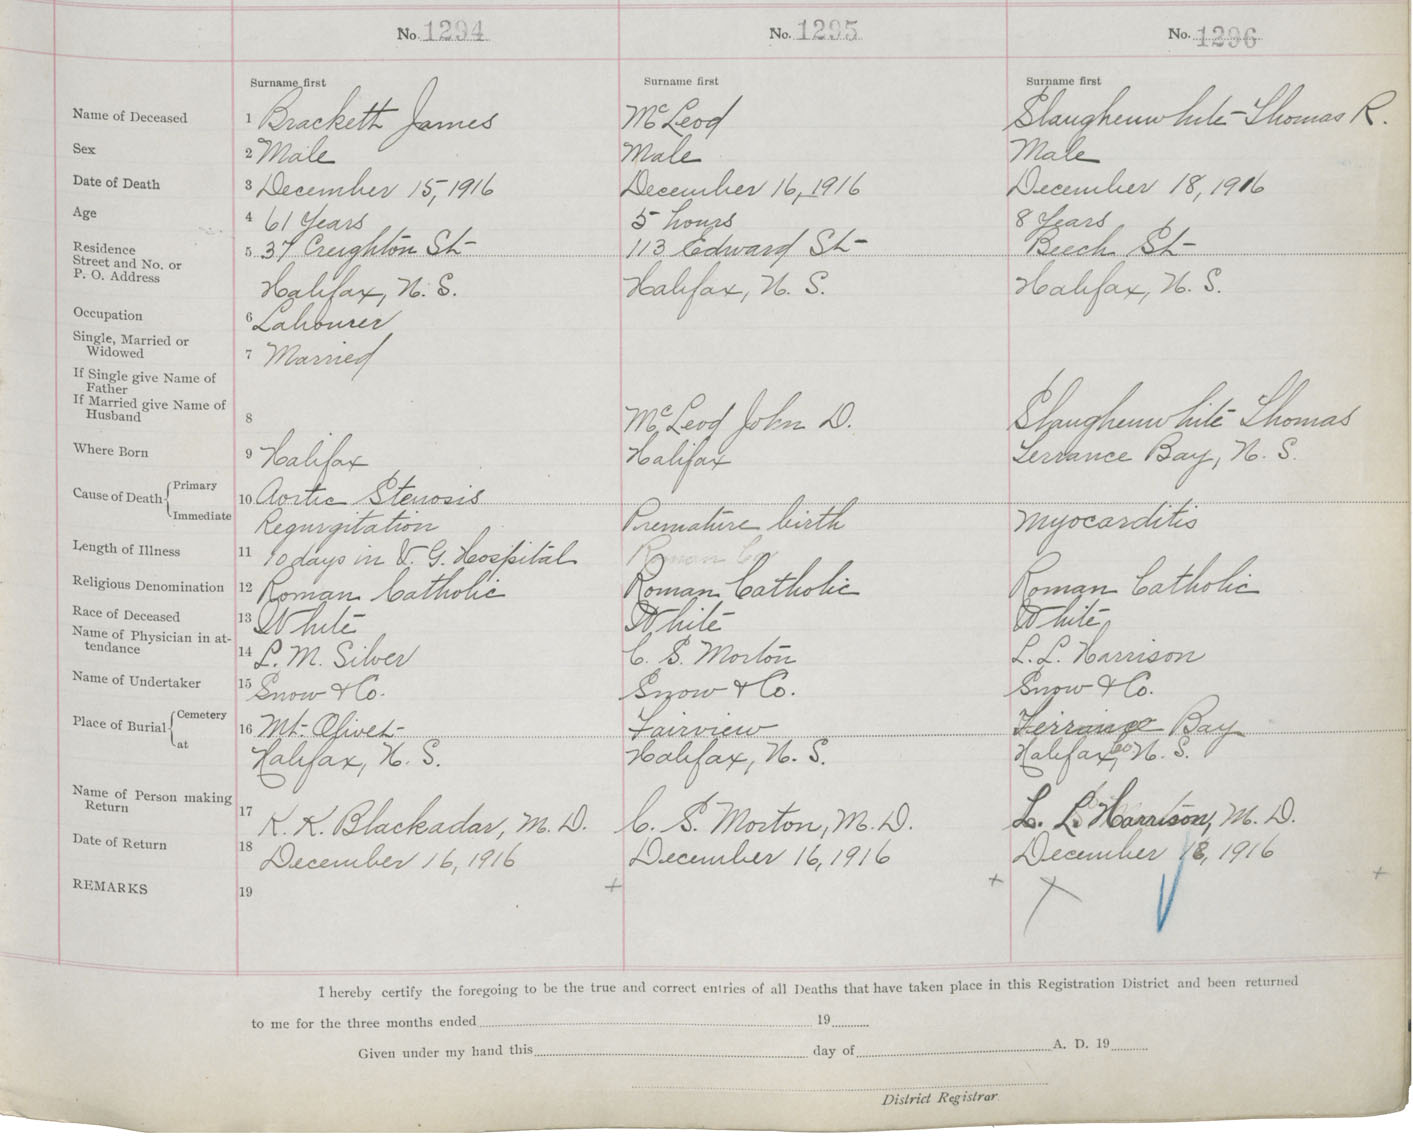 No. 1294 No. 1295 No. 1296
Surname first Surname first Surname first
Name of Deceased 1 Brackett James McLeod Slaughenwhite Thomas R.
Sex 2 Male Male Male
Date of Death 3 December 15, 1916 December 16, 1916 December 18, 1916
Age 4 61 Years 5 hours 8 Years
Residence 5 37 Creighton St 113 Edward St Beech St
Street and No. or
P. O. Address Halifax, N. S. Halifax, N. S. Halifax, N. S.
Occupation 6 Labourer
Single, Married or
Widowed 7 Married
If Single give Name of
Father
If Married give Name of
Husband 8 McLeod John D. Slaughenwhite Thomas
Where Born 9 Halifax Halifax Terrance Bay, N. S.
Cause of Death Primary 10 Aortic Stenosis
Immediate Regurgitation Premature birth Myocarditis
Length of Illness 11 10 days in V. G. Hospital Roman Ca
Religious Denomination 12 Roman Catholic Roman Catholic Roman Catholic
Race of Deceased 13 White White White
Name of Physician in at-
tendance 14 L. M. Silver C. S. Morton L. L. Harrison
Name of Undertaker 15 Snow & Co. Snow & Co. Snow & Co.
Place of Burial Cemetery 16 Mt. Olivet Fairview Terrance Bay
at Halifax, N. S. Halifax, N. S. Halifax Co, N. S.
Name of Person making
Return 17 K. K. Blackadar, M. D. C. S. Morton, M. D. L. L. Harrison, M. D.
Date of Return 18 December 16, 1916 December 16, 1916 December 18, 1916
REMARKS 19
I hereby certify the foregoing to be the true and correct entries of all Deaths that have taken place in this Registration District and been returned
to me for the three months ended 19
Given under my hand this day of A. D. 19
District Registrar